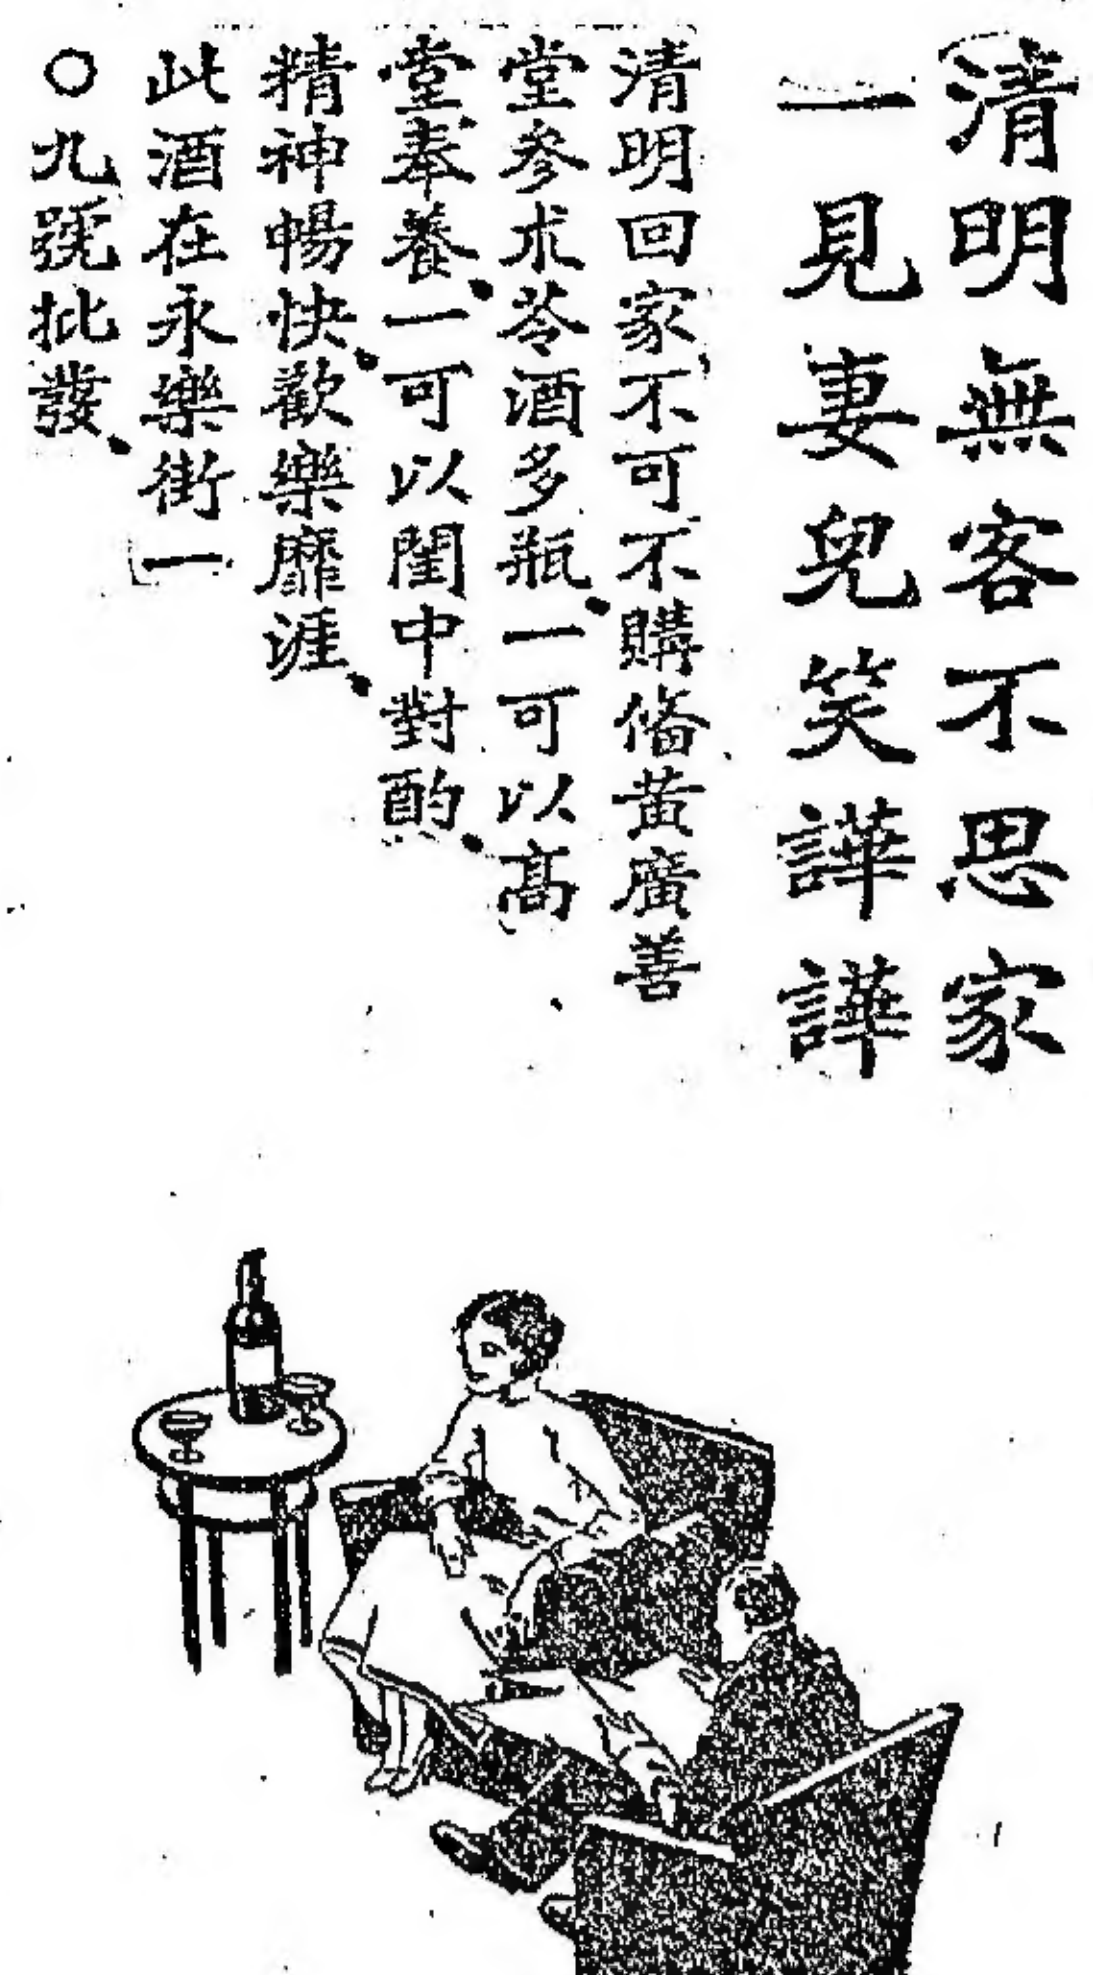 清明無客不思家
一見妻兒笑譁譁
清明回家不可不購俻黃廣善
堂參朮苓酒多瓶、一可以高
堂奉養、一可以閨中對酌、
精神暢快、歡樂靡涯、
此酒在永樂街一
〇九號批發、